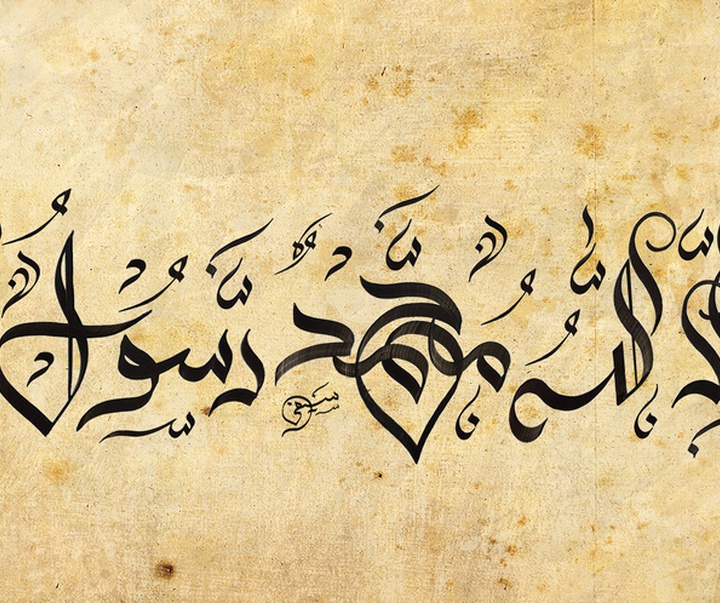 الله محمد رسول